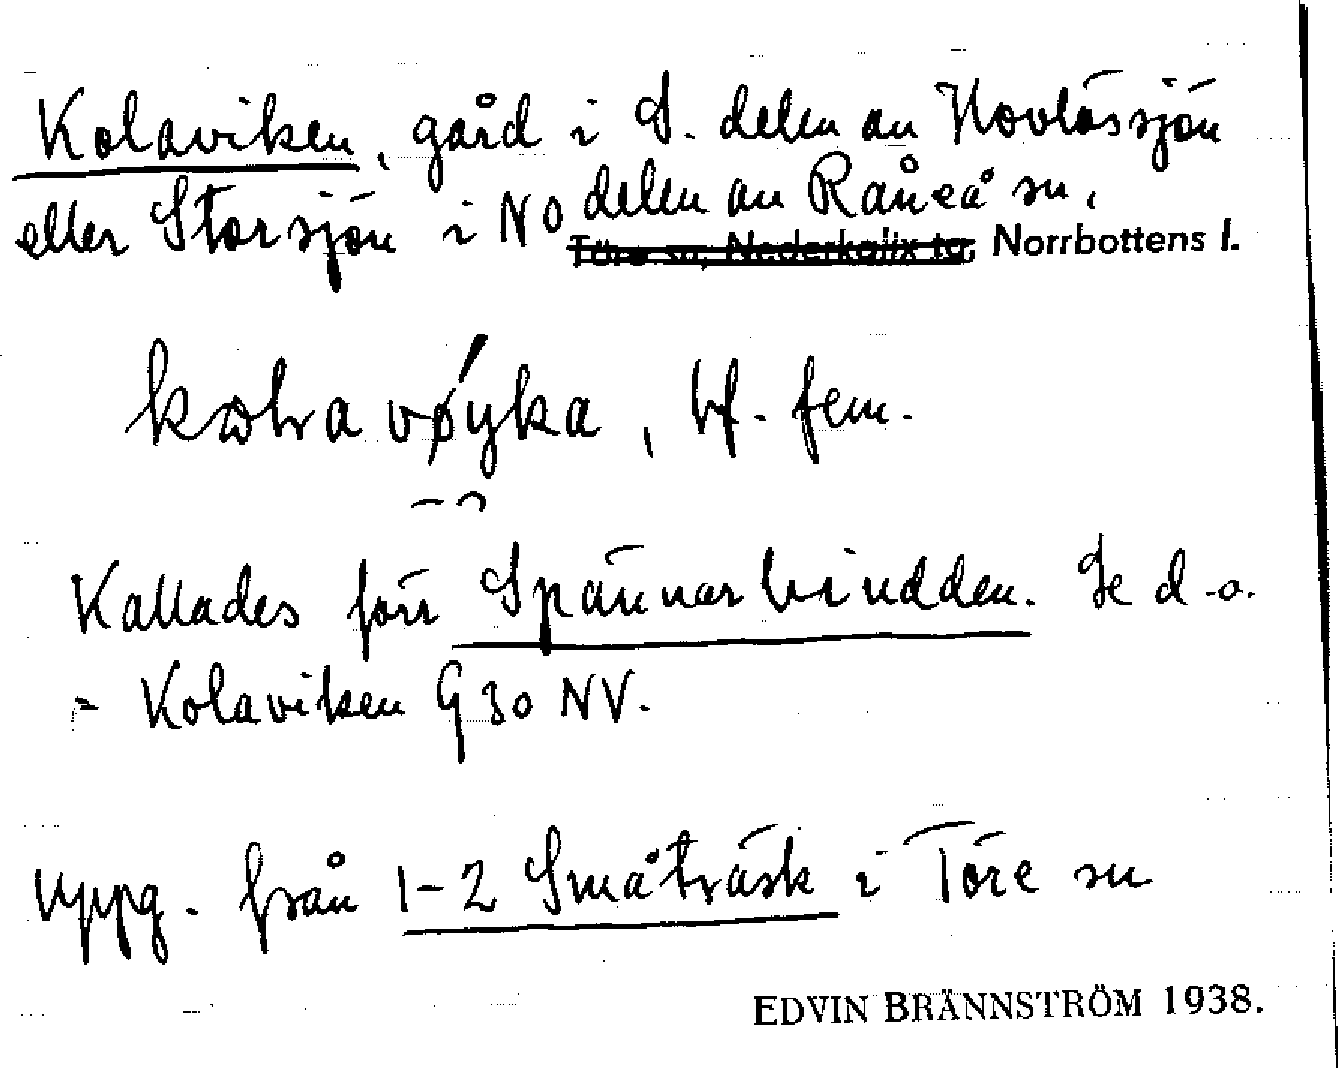 Kolaviken, gård i S. delen av Hovlössjön
eller Storsjön i NO delen av Råneå sn,
Töre sn, Nederkalix tg, Norrbottens l.
kolravøyka, bf. fem.
Kallades förr Spännarbrudden. Se d.o.
= Kolaviken G 30 NV.
uppg. från 1-2 Småträsk i Töre sn
EDVIN BRÄNNSTRÖM 1938.